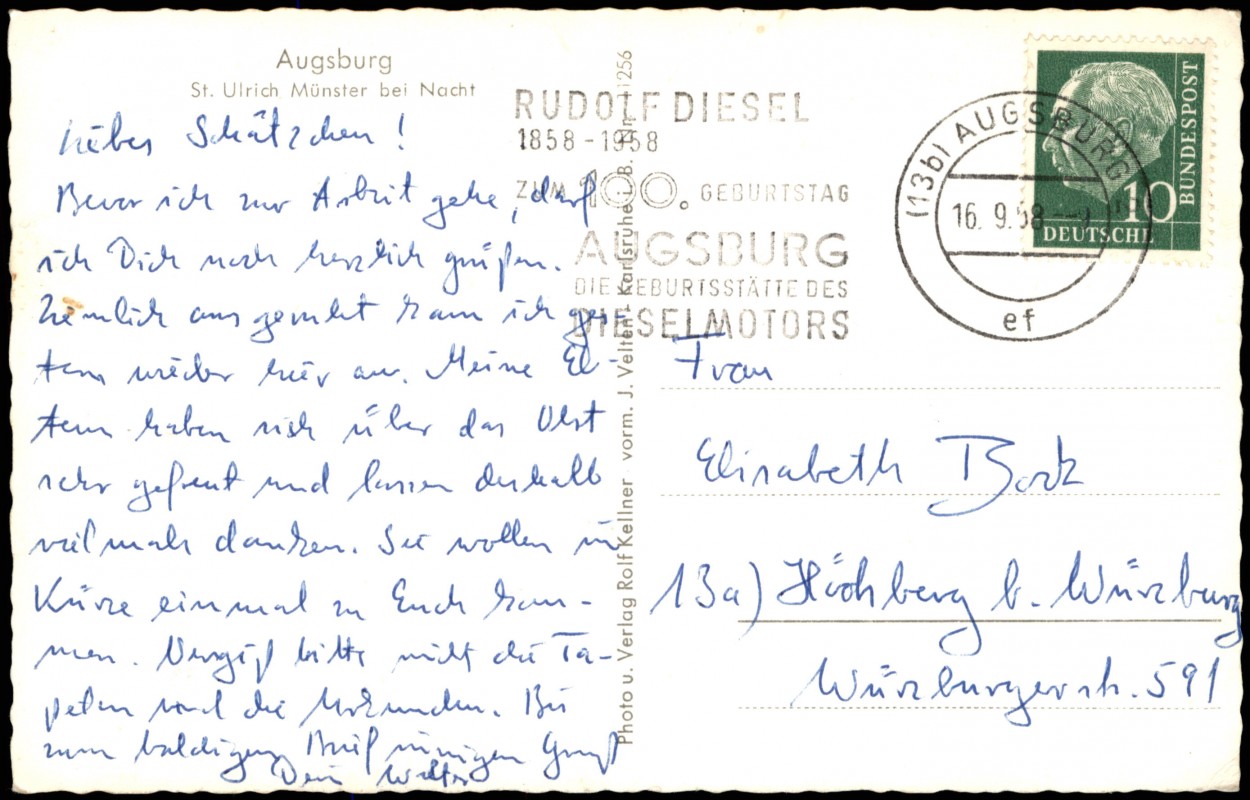 Augsburg
St. Ulrich Münster bei Nacht
Liebes Schätzchen!
Bevor ich zur Arbeit gehe, darf
ich Dich noch herzlich grüßen.
Ziemlich ausgeruht kam ich ges-
tern wieder hier an. Meine El-
tern haben sich über das Obst
sehr gefreut und lassen deshalb
vielmals danken. Sie wollen in
Kürze einmal zu Euch kom-
men. Vergiß bitte nicht die Ta-
peten und die Urkunden. Bis
zum baldigen Brief innigen Gruß
Dein Walter
Photo u. Verlag Rolf Kellner vorm. J. Velten Karlsruhe i. B. Nr. 11256
RUDOLF DIESEL
1858-1958
ZUM 100. GEBURTSTAG
AUGSBURG
DIE GEBURTSSTÄTTE DES
DIESELMOTORS
(13b) AUGSBURG
16.9.58
ef
BUNDESPOST
10
DEUTSCHE
Frau
Elisabeth Bock
13a) Höchberg b. Würzburg
Würzburgerstr. 591